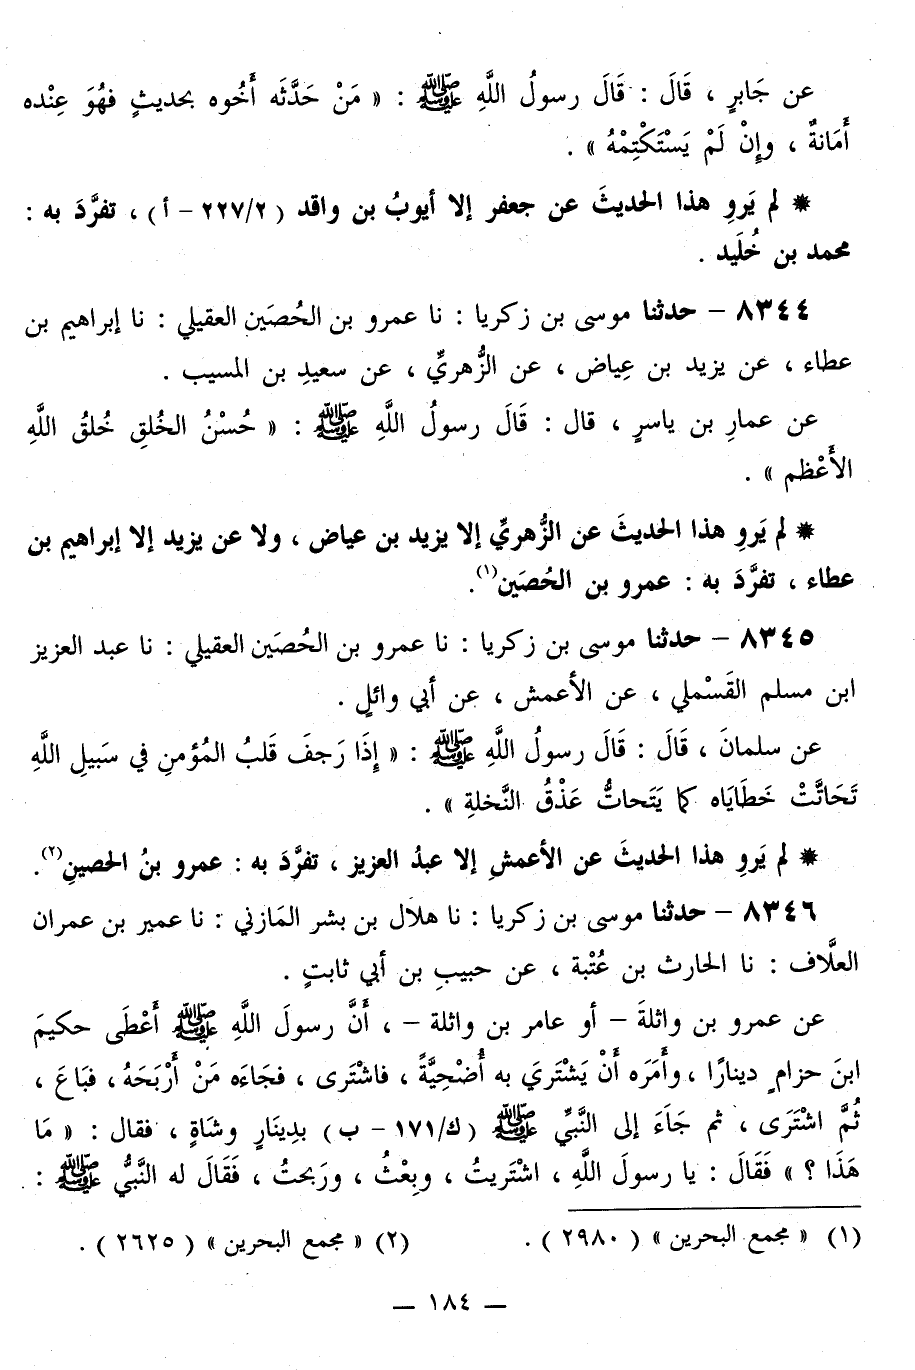 عن جَابرٍ ، قَالَ : قَالَ رسولُ اللَّهِ ﷺ : « مَنْ حَدَّثَه أَخُوه بحديثٍ فهُوَ عِنْده
أَمَانةٌ ، وإِنْ لَمْ يَسْتَكْتِمْهُ » .
* لم يَروِ هذا الحديثَ عن جعفر إلا أيوبُ بن واقد ( ٢٢٧/٢ – أ ) ، تفرَّدَ به :
محمد بن خُلَيد .
٨٣٤٤ – حدثنا موسى بن زكريا : نا عمرو بن الحُصَين العقيلي : نا إبراهيم بن
عطاء ، عن يزيد بن عِياض ، عن الزُّهريِّ ، عن سعيدِ بن المسيب .
عن عمارِ بن ياسرٍ ، قال : قَالَ رسولُ اللَّهِ ﷺ : « حُسْنُ الخُلقِ خُلقُ اللَّهِ
الأَعْظم » .
* لم يَروِ هذا الحديثَ عن الزُّهريِّ إلا يزيد بن عياض ، ولا عن يزيد إلا إبراهيم بن
عطاء ، تفرَّدَ به : عمرو بن الحُصَين(١).
٨٣٤٥ – حدثنا موسى بن زكريا : نا عمرو بن الحُصَين العقيلي : نا عبد العزيز
ابن مسلم القَسْملي ، عن الأعمش ، عن أبي وائلٍ .
عن سلمانَ ، قَالَ : قَالَ رسولُ اللَّهِ ﷺ : « إِذَا رَجفَ قَلبُ المُؤمنِ في سَبيلِ اللَّهِ
تَحَاتَّتْ خَطَايَاه كما يَتَحاتُّ عَذْقُ النَّخلةِ » .
* لم يَروِ هذا الحديثَ عن الأعمشِ إلا عبدُ العزيز ، تفرَّدَ به : عمرو بنُ الحصينِ(٢).
٨٣٤٦ – حدثنا موسى بن زكريا : نا هلال بن بشر المَازني : نا عمير بن عمران
العلَّاف : نا الحارث بن عُتْبة ، عن حبيبِ بن أبي ثابتٍ .
عن عمرو بن واثلةَ – أو عامر بن واثلة – ، أَنَّ رسولَ اللَّهِ ﷺ أَعْطَى حكيمَ
ابنَ حزامٍ دينارًا ، وأَمَرَه أَنْ يَشْتَريَ به أُضْحِيَّةً ، فاشْترى ، فجَاءَه مَنْ أَرْبَحَهُ ، فبَاعَ ،
ثُمَّ اشْتَرَى ، ثم جَاءَ إلى النَّبيِّ ﷺ (ك/١٧١ – ب) بدِينَارٍ وشَاةٍ ، فقال : « مَا
هَذَا ؟ » فَقَالَ : يا رسولَ اللَّهِ ، اشْتَريتُ ، وبِعْثُ ، ورَبحتُ ، فَقَالَ له النَّبيُّ ﷺ :
(١) « مجمع البحرين » ( ٢٩٨٠ ) . (٢) « مجمع البحرين » ( ٢٦٢٥ ) .
— ١٨٤ —